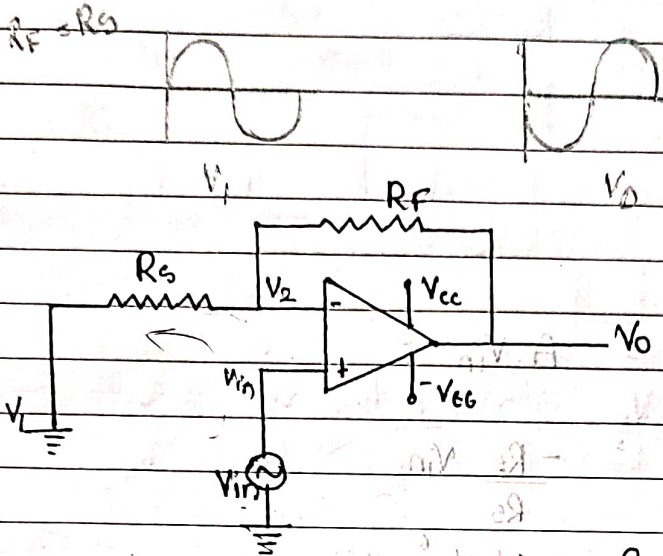 RF = RS
V1
VO
RF
RS
V2
-
VCC
VO
Vin
+
-VEE
V1
Vin